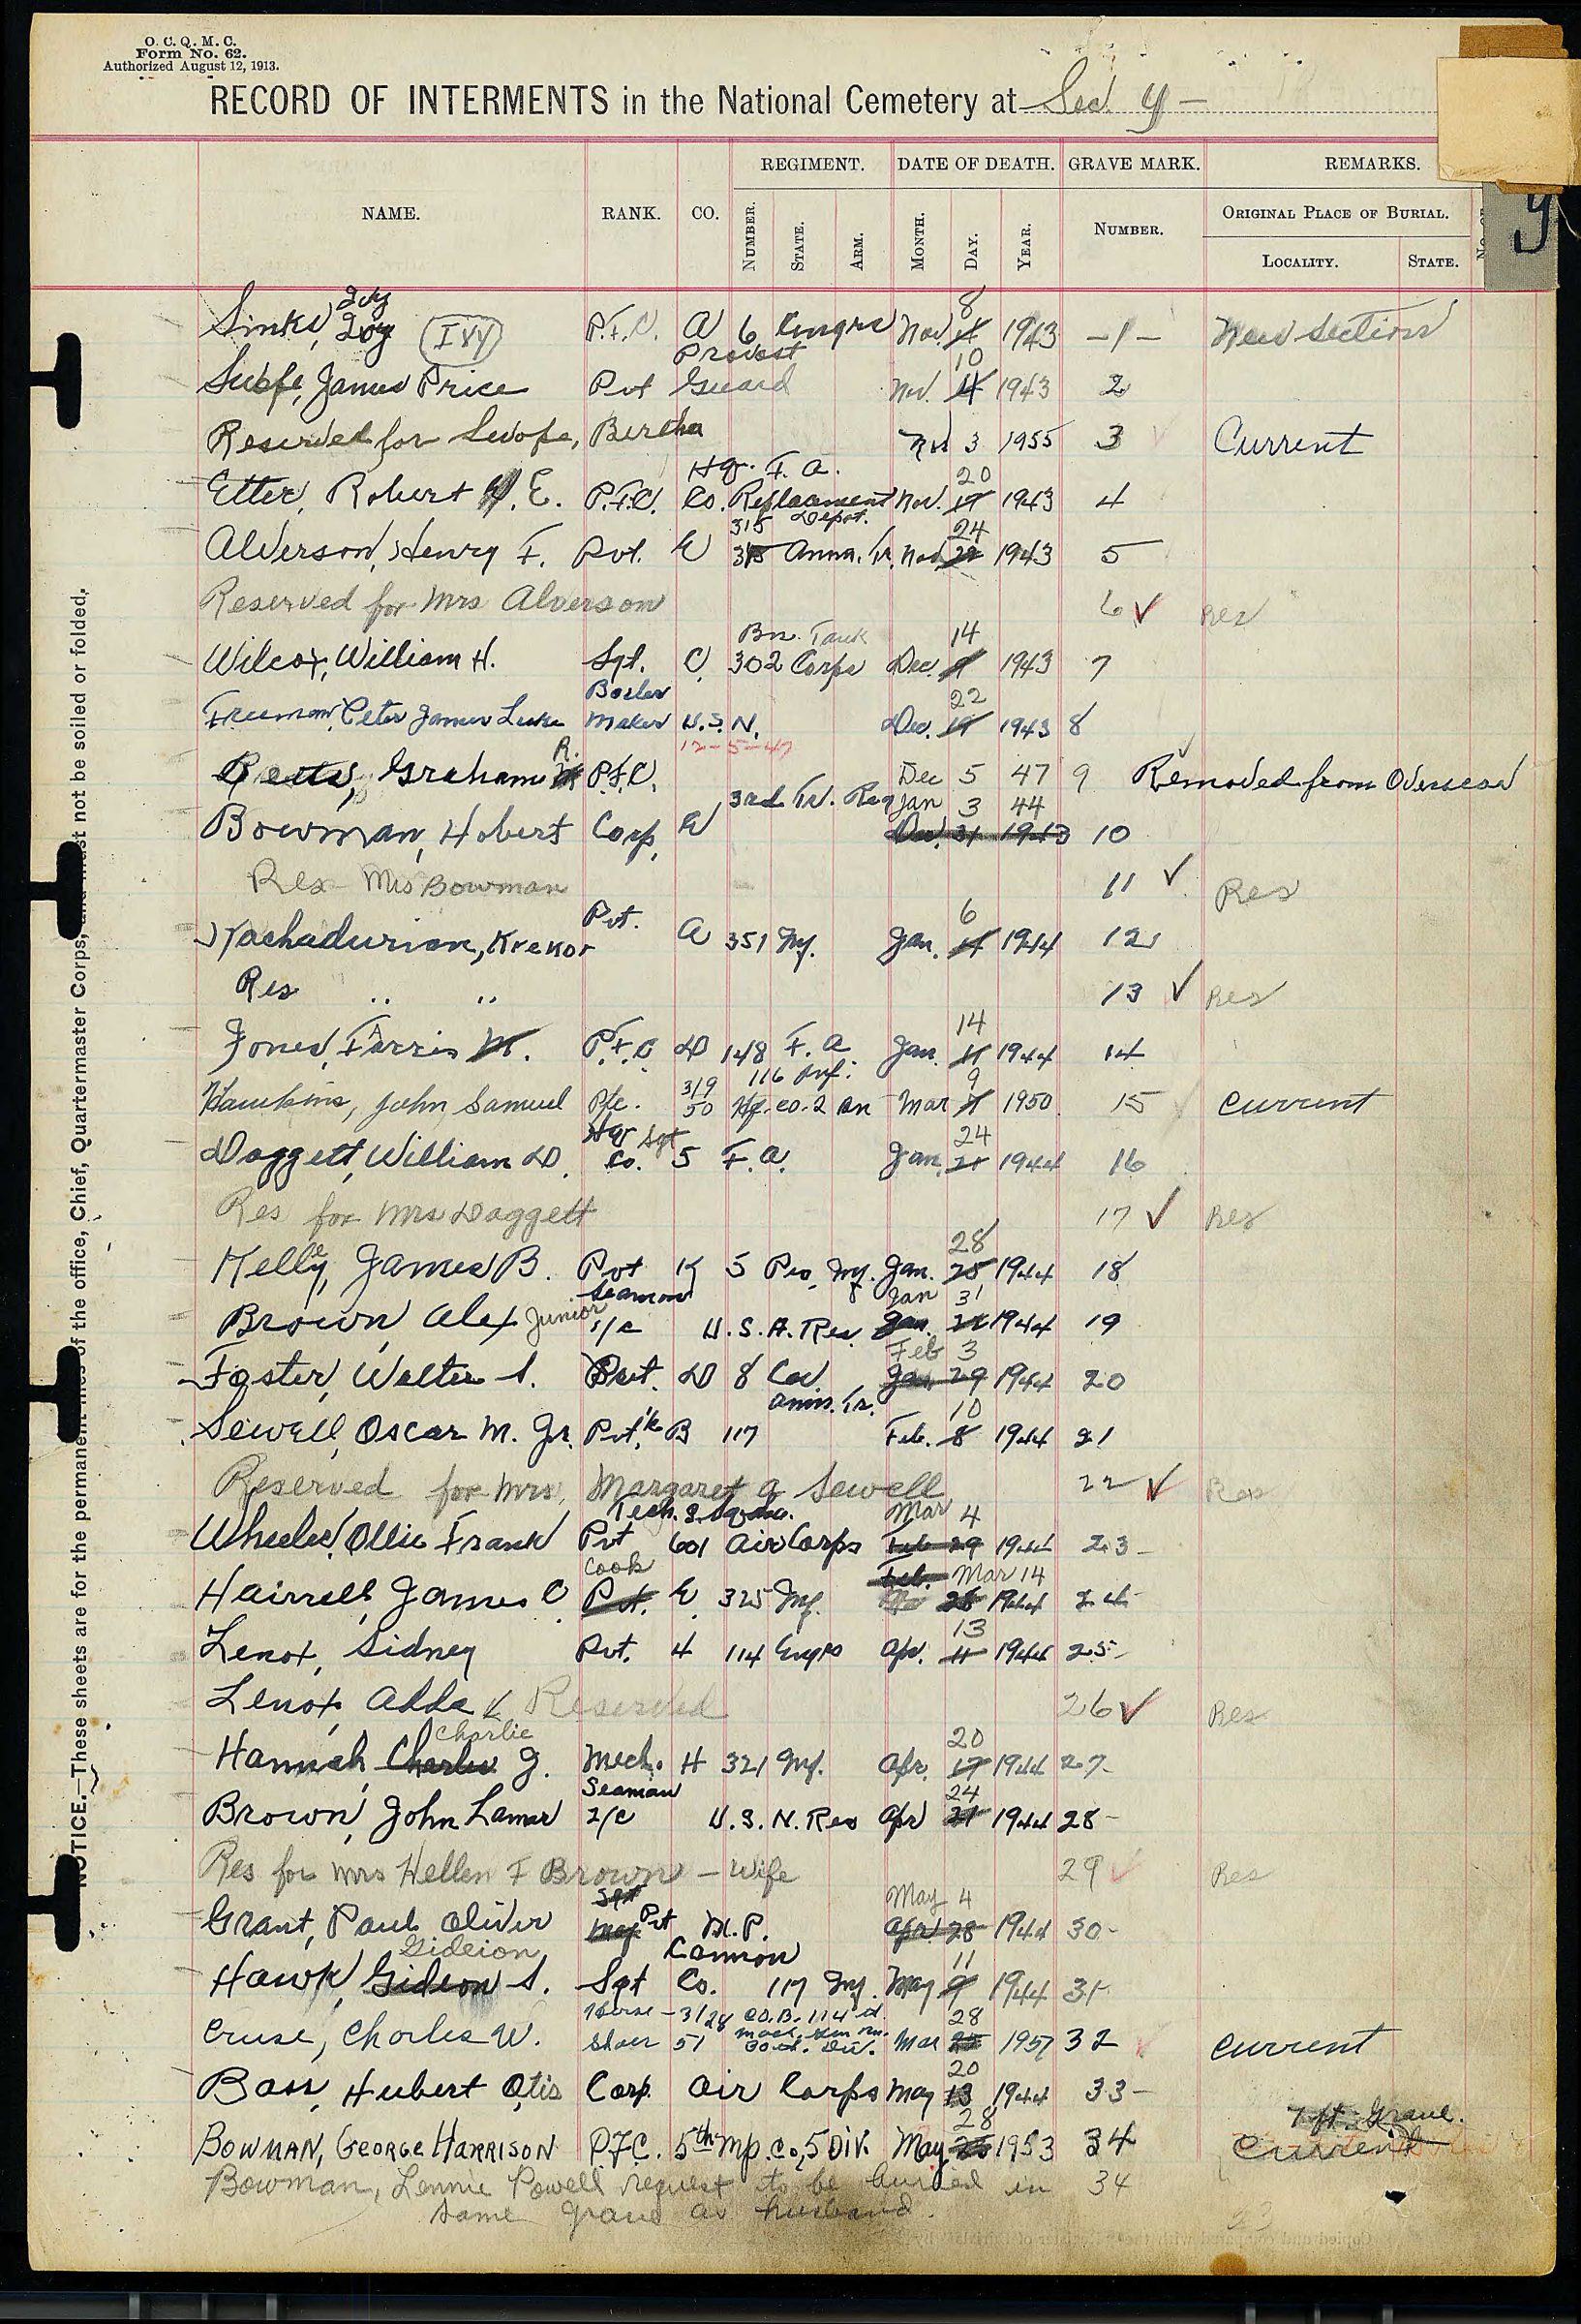 O. C. Q. M. C.
Form No. 62.
Authorized August 12, 1913.
RECORD OF INTERMENTS in the National Cemetery at Sec Y -
NAME. RANK. CO. REGIMENT. DATE OF DEATH. GRAVE MARK. REMARKS.
NUMBER. STATE. ARM. MONTH. DAY. YEAR. NUMBER. ORIGINAL PLACE OF BURIAL.
LOCALITY. STATE.
Y
8
Sinks, Ivy P.F.C. A 6 Engrs Nov. 1943 - 1 - New Section
Provost 10
James Price Pvt Guard Nov. 1943 2
Reserved for Swofe, Bertha Nov 3 1955 3 Current
Hq. F. A. 20
Etter, Robert E. P.F.C. Co. Replacement Nov. 17 1943 4
315 Depot. 24
Alverson, Henry F. Pvt. E 315 Amm. Tr. Nov 1943 5
Reserved for Mrs Alverson 6 ✓ Res
Bn. Tank 14
Wilcox, William H. Sgt. C. 302 Corps Dec. 1943 7
Boiler 22
Freeman, Peter James Luke Maker U.S. N. Dec. 19 1943 8
12-5-47
R.
Betts, Graham P.F.C. Dec 5 47 9 Removed from Overseas
3rd Tr. Reg Jan 3 44
Bowman, Hobert Corp. E Dec. 31 1943 10
Res - Mrs Bowman 11 ✓ Res
Pvt. 6
Hachadurian, Krekor A 351 Inf. Jan. 1944 12
Res .. .. 13 ✓ Res
14
Jones, Farris M. P.F.C D 148 F. A Jan. 11 1944 14
319 116 Inf. 9
Hawkins, John Samuel Pfc. 50 Hq. Co. 2 Bn Mar 1950 15 Current
Hq Sgt 24
Daggett, William D. Co. 5 F. A. Jan. 21 1944 16
Res for Mrs Daggett 17 ✓ Res
28
Kelly, James B. Pvt K 5 Pro. Inf. Jan. 25 1944 18
Seaman Jan 31
Brown, Alex Junior 1/c U. S. N. Res Jan. 1944 19
Feb 3
Foster, Walter S. Pvt. D 8 Cav Jan. 29 1944 20
Amm. Tr. 10
Sewell, Oscar M. Jr. Pvt. 1/c B 117 Feb. 8 1944 21
Reserved for Mrs. Margaret A Sewell 22 ✓ Res
Tech. S. Sqdn. Mar 4
Wheeler, Ollie Frank Pvt 601 Air Corps Feb 29 1944 23 -
Cook Feb. Mar 14
Hairrell, James C. Pvt. E 325 Inf. 1944 24
13
Lenox, Sidney Pvt. 4 114 Engrs Apr. 11 1944 25 -
Lenox, Adda Reserved 26 ✓ Res
Charlie 20
Hannah, Charles J. Mech. H 321 Inf. Apr. 17 1944 27 -
Seaman 24
Brown, John Lamar 2/c U. S. N. Res Apr 21 1944 28 -
Res for Mrs Hellen F Brown - Wife 29 ✓ Res
Sgt May 4
Grant, Paul Oliver Pvt M. P. Apr 28 1944 30 -
Gideion Cannon 11
Hawk, Gideon S. Sgt Co. 117 Inf. May 9 1944 31 -
Horse - 3/28 CO. B. 114th 28
Cruse, Charles W. Shoer 51 Mach. Gun Bn. 30th Div. Mar 25 1951 32 Current
20
Bass, Hubert Otis Corp. Air Corps May 13 1944 33 -
28 7 ft. Grave.
BOWMAN, GEORGE HARRISON P.F.C. 5th MP. Co, 5 DIV. May 1953 34 Current
Bowman, Lennie Powell request to be buried in 34
same grave as husband.
NOTICE.—These sheets are for the permanent files of the office, Chief, Quartermaster Corps, and must not be soiled or folded.